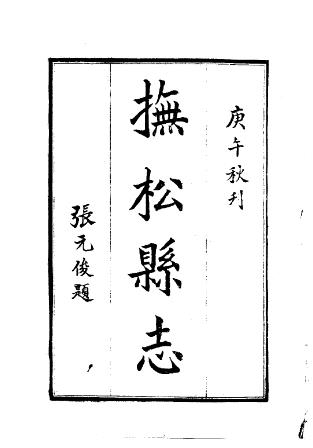 庚午秋刋
撫松縣志
張元俊題